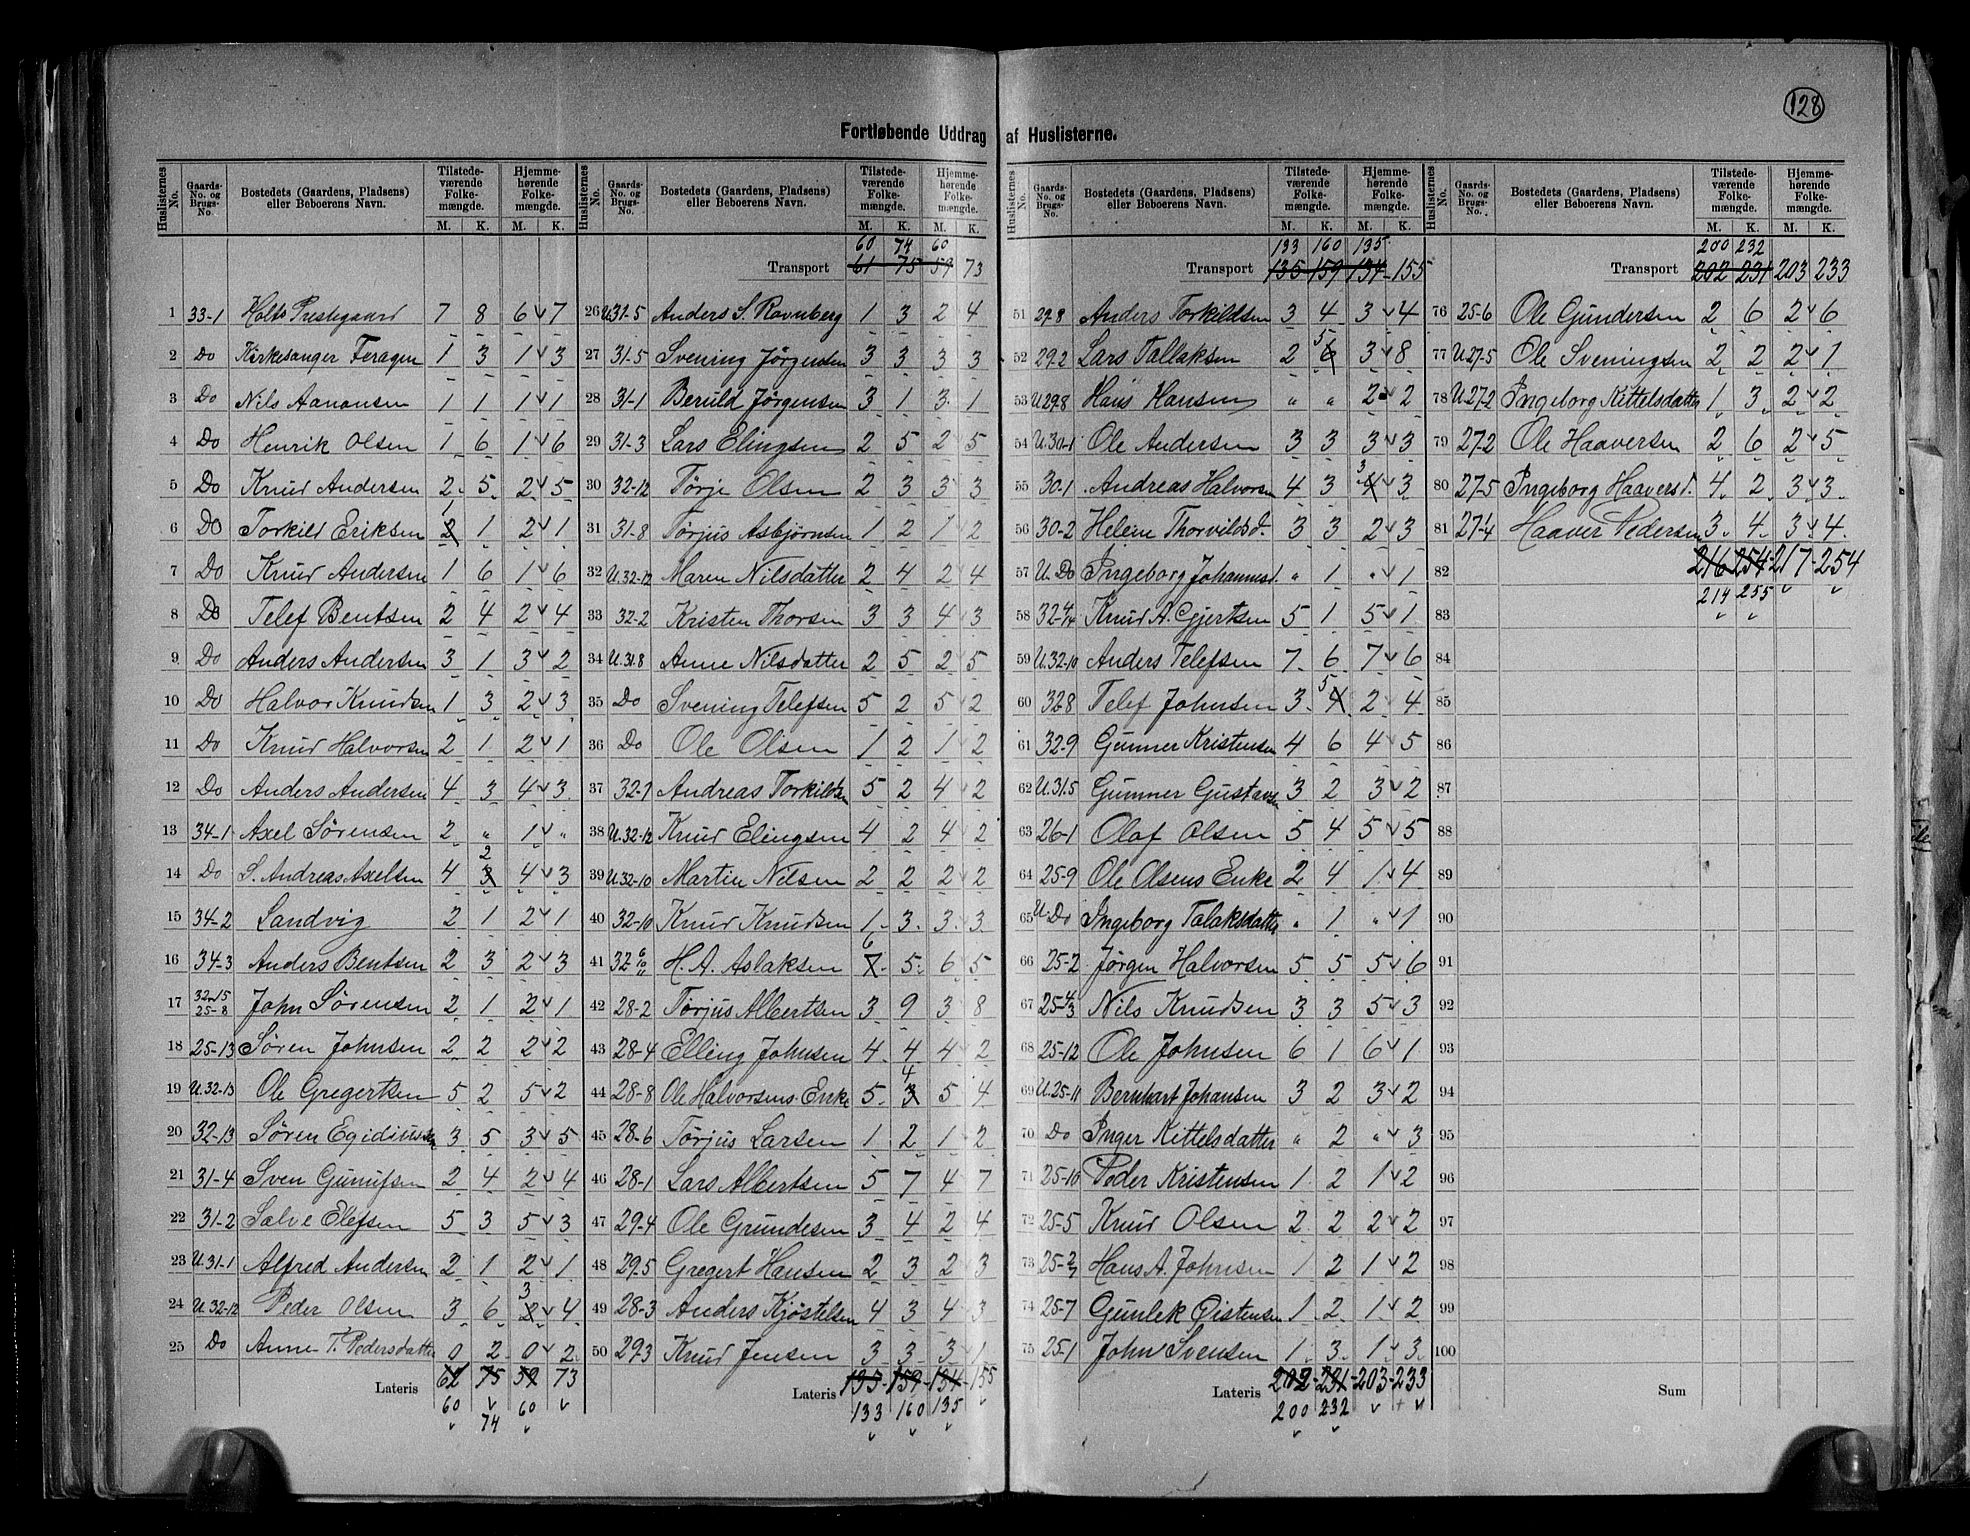 128
Fortløbende Uddrag af Huslisterne.
Huslisternes No. | Gaards-No. og Brugs-No. | Bostedets (Gaardens, Pladsens) eller Beboerens Navn. | Tilstedeværende Folkemængde. M. K. | Hjemmehørende Folkemængde. M. K.
1 33-1 Holts Prestegaard 7 8 6 7
2 Do Kirkesanger Feragen 1 3 1 3
3 Do Nils Aanonsen 1 1 1 1
4 Do Henrik Olsen 1 6 1 6
5 Do Knud Andersen 2 5 2 5
6 Do Torkild Eriksen 1 1 2 1
7 Do Knud Andersen 1 6 1 6
8 Do Telef Bentsen 2 4 2 4
9 Do Anders Andersen 3 1 3 2
10 Do Halvor Knudsen 1 3 2 3
11 Do Knud Halvorsen 2 1 2 1
12 Do Anders Andersen 4 3 4 3
13 34-1 Axel Sørensen 2 " 1 "
14 Do S. Andreas Axelsen 4 2 4 3
15 34-2 Sandvig 2 1 2 1
16 34-3 Anders Bentsen 2 3 2 3
17 32-15 25-8 John Sørensen 2 1 2 1
18 25-13 Søren Johnsen 2 2 2 2
19 U.32-13 Ole Gregertsen 5 2 5 2
20 32-13 Søren Egidiussen 3 5 3 5
21 31-4 Sven Gunufsen 2 4 2 4
22 31-2 Salve Elefsen 5 3 5 3
23 U.31-1 Alfred Andersen 2 1 2 1
24 U.32-12 Peder Olsen 3 6 3 4
25 Do Anne T. Pedersdatter 0 2 0 2
Lateris 62 75 59 73
60 74 60
Huslisternes No. | Gaards-No. og Brugs-No. | Bostedets (Gaardens, Pladsens) eller Beboerens Navn. | Tilstedeværende Folkemængde. M. K. | Hjemmehørende Folkemængde. M. K.
60 74 60
Transport 61 75 59 73
26 U31-5 Anders S. Ravnberg 1 3 2 4
27 31-5 Svening Jørgensen 3 3 3 3
28 31-1 Beruld Jørgensen 3 1 3 1
29 31-3 Lars Elingsen 2 5 2 5
30 32-12 Tørje Olsen 2 3 3 3
31 31-8 Tørjus Asbjørnsen 1 2 1 2
32 U.32-12 Maren Nilsdatter 2 4 2 4
33 32-2 Kristen Thorsen 3 3 4 3
34 U.31.8 Anne Nilsdatter 2 5 2 5
35 Do Svening Telefsen 5 2 5 2
36 Do Ole Olsen 1 2 1 2
37 32-7 Andreas Torkildsen 5 2 4 2
38 U.32-12 Knud Elingsen 4 2 4 2
39 U.32-10 Martin Nilsen 2 2 2 2
40 32-10 Knud Knudsen 1 3 3 3
41 32 H. A. Aslaksen 6 5 6 5
42 28-2 Tørjus Albertsen 3 9 3 8
43 28-4 Elling Johnsen 4 4 4 2
44 28-8 Ole Halvorsens Enke 5 4 5 4
45 28-6 Tørjus Larsen 1 2 1 2
46 28-1 Lars Albertsen 5 7 4 7
47 29-4 Ole Grundesen 3 4 2 4
48 29-5 Gregert Hansen 2 3 2 3
49 28-3 Anders Kjøstelsen 4 3 4 3
50 29-3 Knud Jensen 3 3 3 1
Lateris 135 159 134 155
133 160 135
Huslisternes No. | Gaards-No. og Brugs-No. | Bostedets (Gaardens, Pladsens) eller Beboerens Navn. | Tilstedeværende Folkemængde. M. K. | Hjemmehørende Folkemængde. M. K.
133 160 135
Transport 135 159 134 155
51 29-8 Anders Torkildsen 3 4 3 4
52 29-2 Lars Tallaksen 2 5 3 8
53 U.29.8 Hans Hansen " " 2 2
54 U.30-1 Ole Andersen 3 3 3 3
55 30-1 Andreas Halvorsen 4 3 3 3
56 30-2 Helene Thorvildsd. 3 3 2 3
57 U. Do Ingeborg Johannesd. " 1 " 1
58 32-4/14 Knud A. Gjertsen 5 1 5 1
59 U.32-10 Anders Telefsen 7 6 7 6
60 32-8 Telef Johnsen 3 5 2 4
61 32-9 Gunner Kristensen 4 6 4 5
62 U.31.5 Gunner Gustavsen 3 2 3 2
63 26-1 Olaf Olsen 5 4 5 5
64 25-9 Ole Olsens Enke 2 4 1 4
65 U.Do Ingeborg Talaksdatter " 1 " 1
66 25-2 Jørgen Halvorsen 5 5 5 6
67 25-4/3 Nils Knudsen 3 3 5 3
68 25-12 Ole Johnsen 6 1 6 1
69 U.25-11 Bernhart Johansen 3 2 3 2
70 Do Inger Kittelsdatter " 2 " 3
71 25-10 Peder Kristensen 1 2 1 2
72 25-5 Knud Olsen 2 2 2 2
73 25-2/7 Hans A. Johnsen 1 2 1 2
74 25-7 Gunlek Øistensen 1 2 1 2
75 25-1 John Svensen 1 3 1 3
Lateris 202 231 203 233
200 232
Huslisternes No. | Gaards-No. og Brugs-No. | Bostedets (Gaardens, Pladsens) eller Beboerens Navn. | Tilstedeværende Folkemængde. M. K. | Hjemmehørende Folkemængde. M. K.
200 232
Transport 202 231 203 233
76 25-6 Ole Gundersen 2 6 2 6
77 U.27-5 Ole Sveningsen 2 2 2 1
78 U.27-2 Ingeborg Kittelsdatter 1 3 2 2
79 27-2 Ole Haaversen 2 6 2 5
80 27-5 Ingeborg Haaversd. 4 2 3 3
81 27-1/4 Haaver Pedersen 3 4 3 4
82 216 254 217 254
214 255
83
84
85
86
87
88
89
90
91
92
93
94
95
96
97
98
99
100
Sum